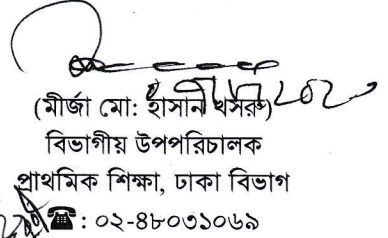 (মীর্জা মো: হাসান খসরু)
বিভাগীয় উপপরিচালক
প্রাথমিক শিক্ষা, ঢাকা বিভাগ
☎: ০২-৪৮০৩১০৬৯